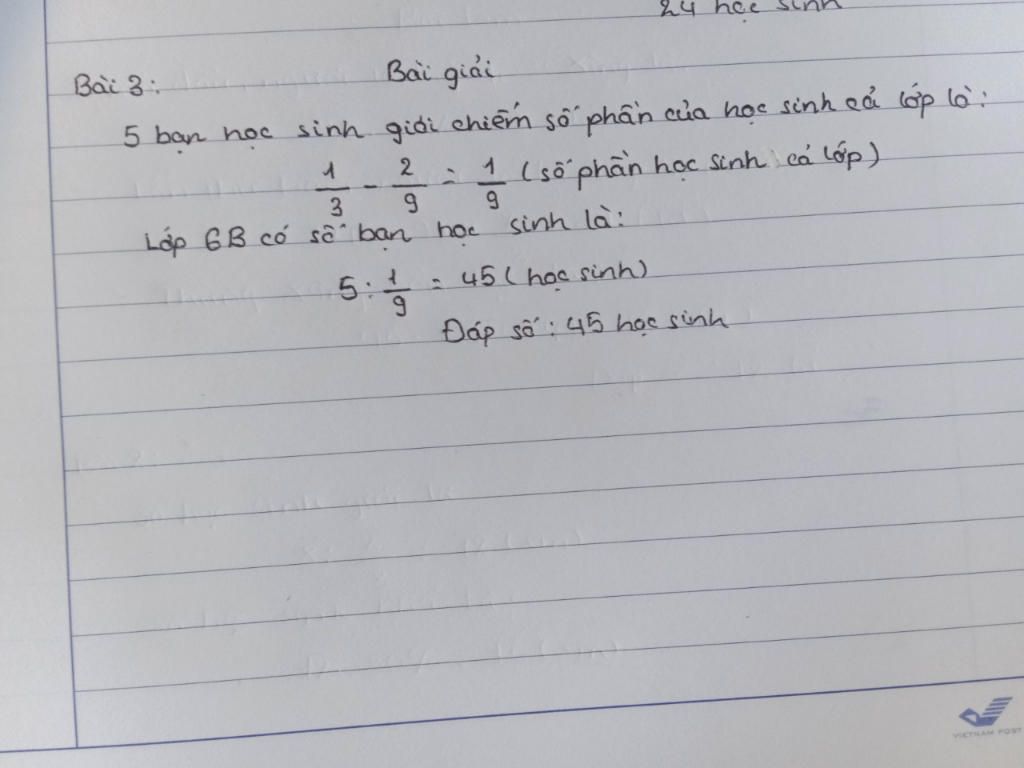 24 học sinh
Bài 3: Bài giải
5 bạn học sinh giỏi chiếm số phần của học sinh cả lớp là:
1/3 - 2/9 = 1/9 (số phần học sinh cả lớp)
Lớp 6B có số bạn học sinh là:
5 : 1/9 = 45 (học sinh)
Đáp số: 45 học sinh
VIETNAM POST